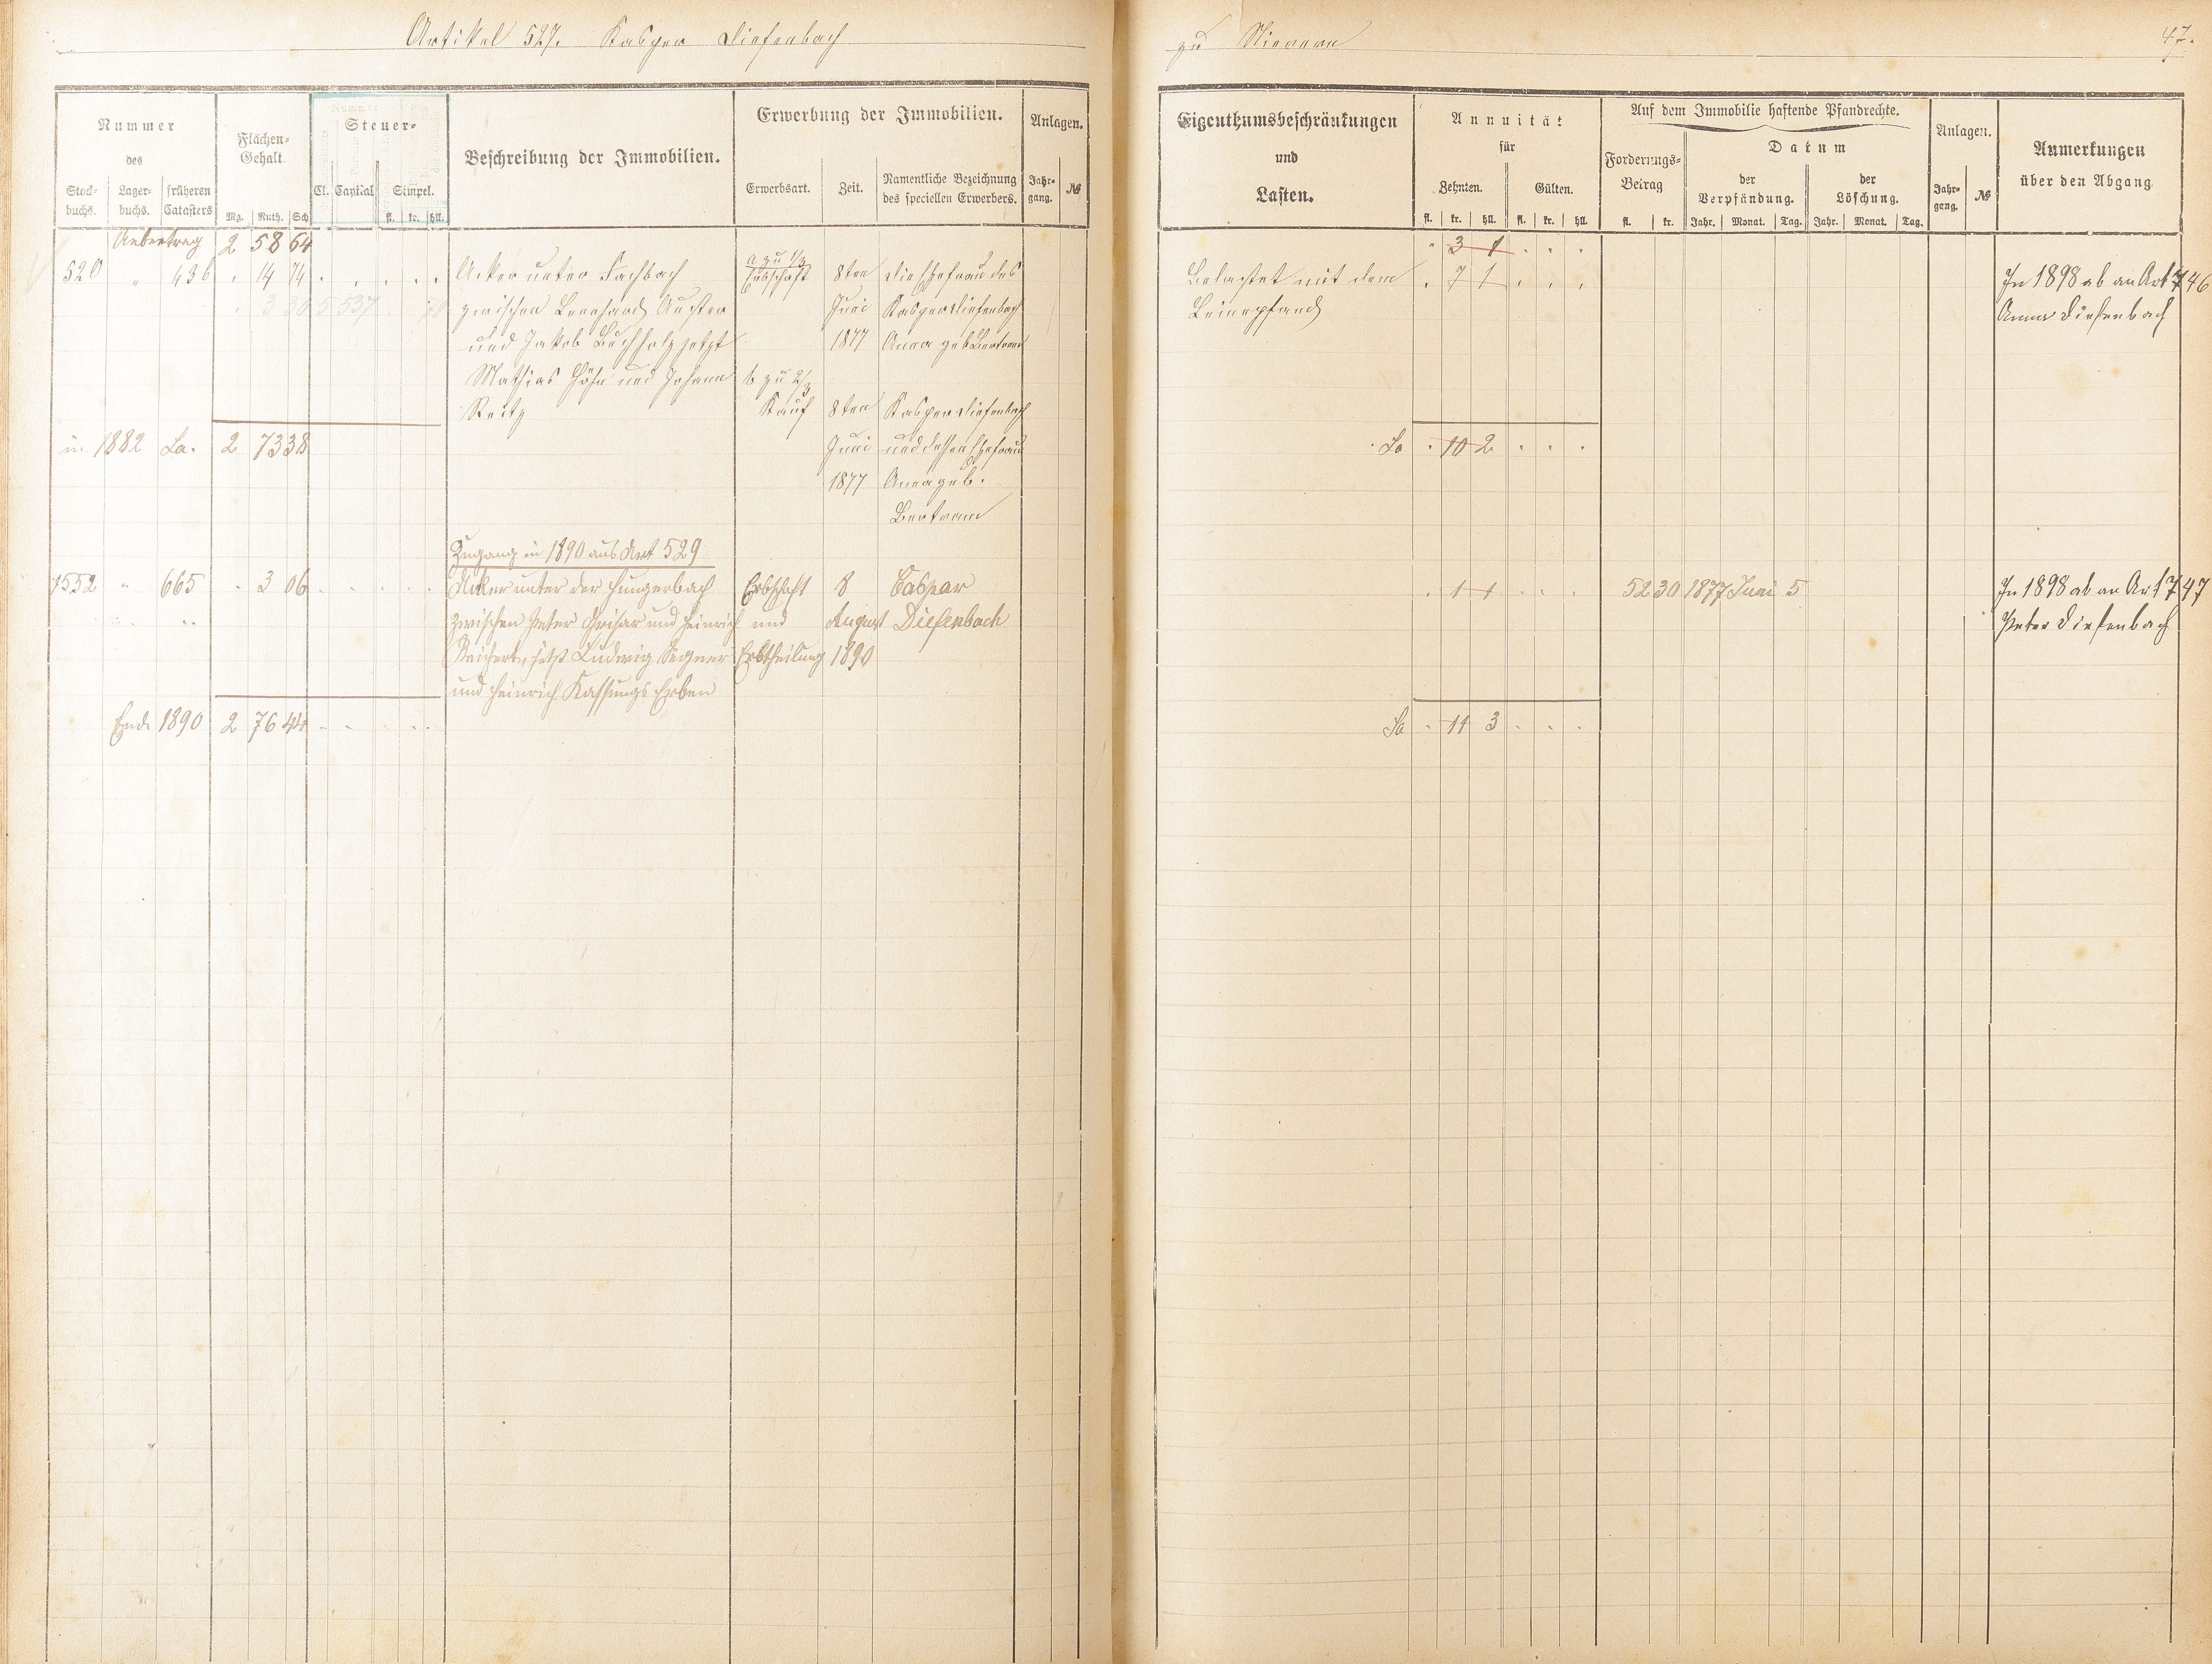 Artikel 527. Kasper Diefenbach
zu Nievern
47.
Nummer
des
Stock-
buchs.
Lager-
buchs.
früheren
Catasters
Flächen-
Gehalt
Mg. Ruth. Sch
Steuer-
Cl. Capital Simpel.
fl. kr. hll.
Beschreibung der Immobilien.
Erwerbung der Immobilien.
Erwerbsart. Zeit.
Namentliche Bezeichnung
des speciellen Erwerbers.
Anlagen.
Jahr-
gang.
№
Eigenthumsbeschränkungen
und
Lasten.
Annuität
für
Zehnten. Gülten.
fl. kr. hll. fl. kr. hll.
Auf dem Immobilie haftende Pfandrechte.
Forderungs-
Betrag
fl. kr.
Datum
der
Verpfändung.
der
Löschung.
Jahr. Monat. Tag. Jahr. Monat. Tag.
Anlagen.
Jahr-
gang.
№
Anmerkungen
über den Abgang
Uebertrag 2 58 64
3 1
520 " 436 . 14 74
Acker unter Fachbach
zwischen Bernhard Auster
und Jakob Buchholz jetzt
Mathias Höhn und Johann
Reitz
a zu 1/3
Erbschaft
8ten
Juni
1877
die Ehefrau des
Kasper Diefenbach
Anna geb. Bertram
b zu 2/3
Kauf
8ten
Juni
1877
Kasper Diefenbach
und dessen Ehefrau
Anna geb.
Bertram
3 30 5 537
Belastet mit dem
Leinepfand
7 1
In 1898 ab an Art 746
Anna Diefenbach
in 1882 Sa. 2 73 38
Sa 10 2
Zugang in 1890 aus Art 529
1552 " 665 - 3 06
Acker unter der Hungerbach
zwischen Peter Grisar und Heinrich
Reichert, jetzt Ludwig Segner
und Heinrich Kassungs Erben
Erbschaft
und
Erbtheilung
8
August
1890
Caspar
Diefenbach
1 1
52 30 1877 Juni 5
In 1898 ab an Art 747
Peter Diefenbach
Ende 1890 2 76 44
Sa 11 3